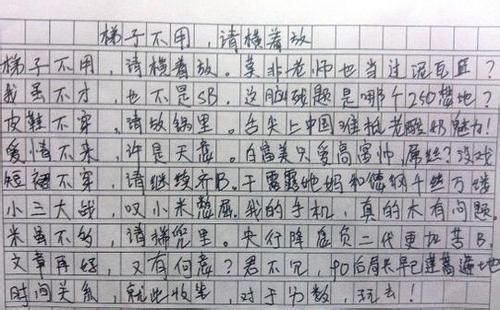 梯子不用,请横着放
梯子不用,请横着放。莫非老师也当过泥瓦匠?
我虽不才,也不是SB。这脑残题是哪个250想地?
皮鞋不穿,请放锅里。舌尖上中国难抵老酸奶魅力!
爱情不来,许是天意。白富美只爱高富帅,屌丝?没戏
短裙不穿,请继续齐B。干露露她妈和德纲千丝万缕
小三大战,叹小米憋屈。我的手机,真的木有问题
米虽不多,请揣兜里。央行降息负二代更加苦B
文章再好,又有何意?君不见,90后局长早已遍地
时间关系,就此收笔,对于分数,玩去!